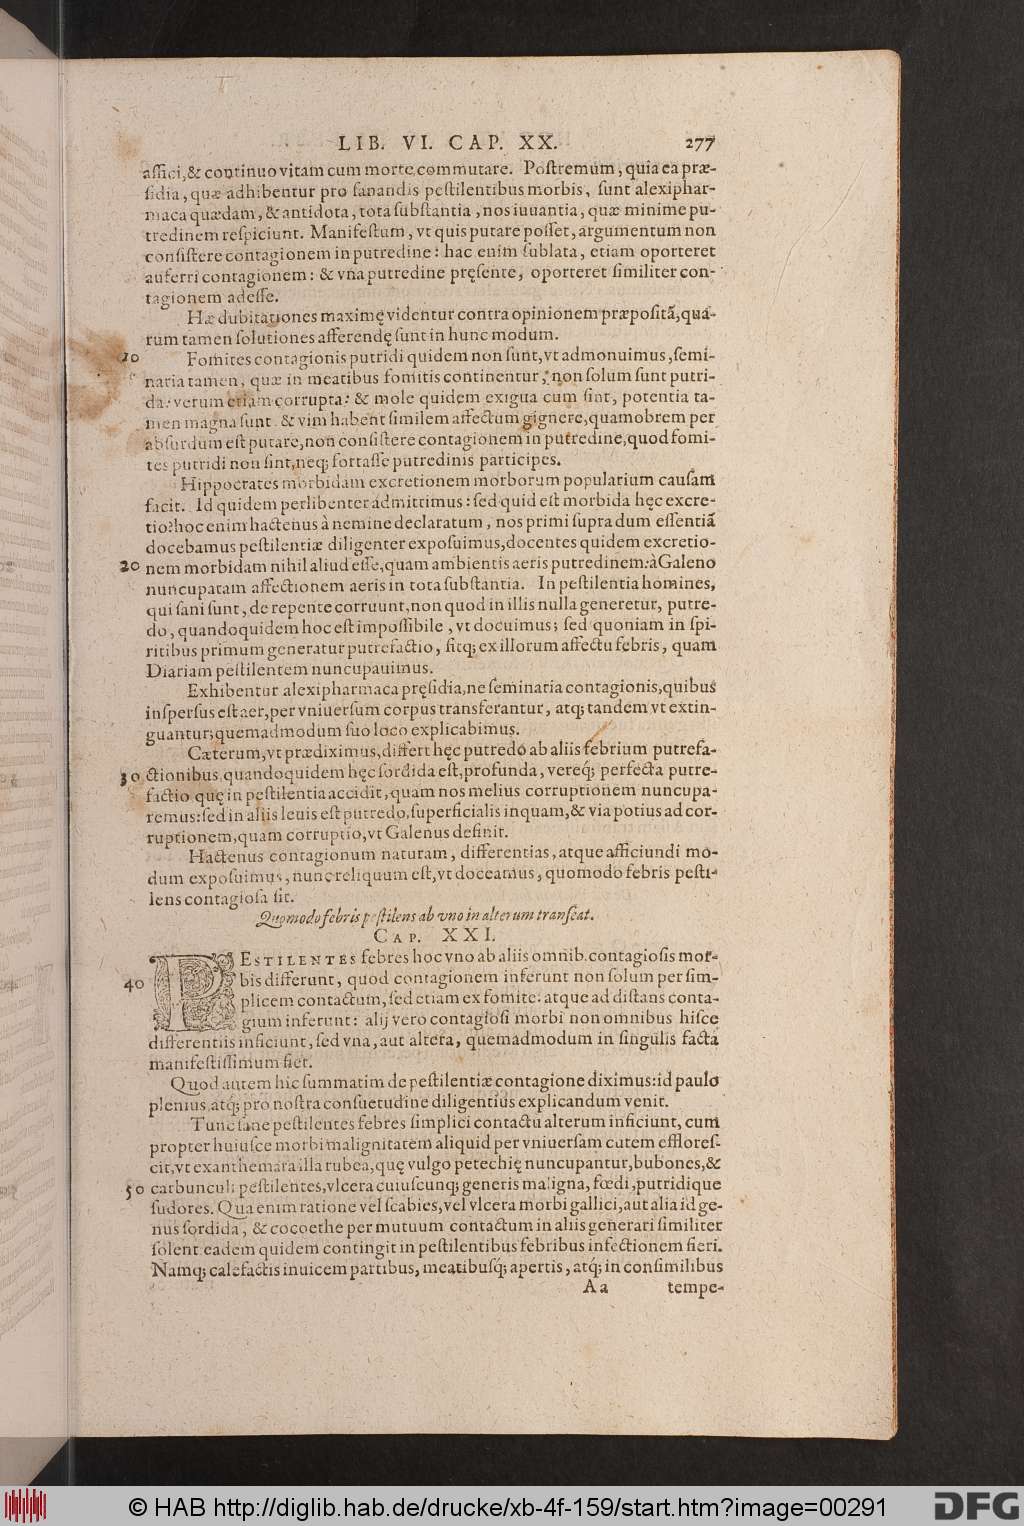 LIB. VI. CAP. XX. 277
affici, & continuo vitam cum morte commutare. Postremum, quia ea præ-
sidia, quæ adhibentur pro sanandis pestilentibus morbis, sunt alexiphar-
maca quædam, & antidota, tota substantia, nos iuuantia, quæ minime pu-
tredinem respiciunt. Manifestum, vt quis putare posset, argumentum non
consistere contagionem in putredine: hac enim sublata, etiam oporteret
auferri contagionem: & vna putredine pręsente, oporteret similiter con-
tagionem adesse.
Hæ dubitationes maximę videntur contra opinionem præpositā, qua-
rum tamen solutiones afferendę sunt in hunc modum.
10 Fomites contagionis putridi quidem non sunt, vt admonuimus, semi-
naria tamen, quæ in meatibus fomitis continentur, non solum sunt putri-
da: verum etiam corrupta: & mole quidem exigua cum sint, potentia ta-
men magna sunt. & vim habent similem affectum gignere, quamobrem per
absurdum est putare, non consistere contagionem in putredine, quod fomi-
tes putridi non sint, neq; fortasse putredinis participes.
Hippocrates morbidam excretionem morborum popularium causam
facit. Id quidem perlibenter admittimus: sed quid est morbida hęc excre-
tio? hoc enim hactenus à nemine declaratum, nos primi supra dum essentiā
docebamus pestilentiæ diligenter exposuimus, docentes quidem excretio-
20 nem morbidam nihil aliud esse, quam ambientis aeris putredinem: à Galeno
nuncupatam affectionem aeris in tota substantia. In pestilentia homines,
qui sani sunt, de repente corruunt, non quod in illis nulla generetur, putre-
do, quandoquidem hoc est impossibile, vt docuimus; sed quoniam in spi-
ritibus primum generatur putrefactio, sitq; ex illorum affectu febris, quam
Diariam pestilentem nuncupauimus.
Exhibentur alexipharmaca pręsidia, ne seminaria contagionis, quibus
inspersus est aer, per vniuersum corpus transferantur, atq; tandem vt extin-
guantur; quemadmodum suo loco explicabimus.
Cæterum, vt prædiximus, differt hęc putredo ab aliis febrium putrefa-
30 ctionibus, quandoquidem hęc sordida est, profunda, vereq́; perfecta putre-
factio quę in pestilentia accidit, quam nos melius corruptionem nuncupa-
remus: sed in aliis leuis est putredo, superficialis inquam, & via potius ad cor-
ruptionem, quam corruptio, vt Galenus definit.
Hactenus contagionum naturam, differentias, atque afficiundi mo-
dum exposuimus, nunc reliquum est, vt doceamus, quomodo febris pesti-
lens contagiosa sit.
Quomodo febris pestilens ab vno in alterum transeat.
CAP. XXI.
PESTILENTES febres hoc vno ab aliis omnib. contagiosis mor-
40 bis differunt, quod contagionem inferunt non solum per sim-
plicem contactum, sed etiam ex fomite: atque ad distans conta-
gium inferunt: alij vero contagiosi morbi non omnibus hisce
differentiis inficiunt, sed vna, aut altera, quemadmodum in singulis facta
manifestissimum fiet.
Quod autem hic summatim de pestilentiæ contagione diximus: id paulo
plenius, atq́; pro nostra consuetudine diligentius explicandum venit.
Tunc sane pestilentes febres simplici contactu alterum inficiunt, cum
propter huiusce morbi malignitatem aliquid per vniuersam cutem efflores-
cit, vt exanthemata illa rubea, quę vulgo petechię nuncupantur, bubones, &
50 carbunculi pestilentes, vlcera cuiuscunq; generis maligna, fœdi, putridique
sudores. Qua enim ratione vel scabies, vel vlcera morbi gallici, aut alia id ge-
nus sordida, & cocoethe per mutuum contactum in aliis generari similiter
solent eadem quidem contingit in pestilentibus febribus infectionem fieri.
Namq; calefactis inuicem partibus, meatibusq́; apertis, atq́; in consimilibus
Aa tempe-
© HAB http://diglib.hab.de/drucke/xb-4f-159/start.htm?image=00291 DFG